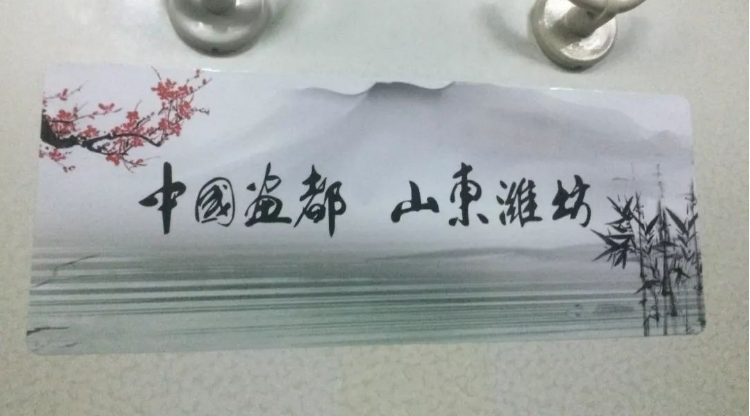 中國畫都 山東潍坊